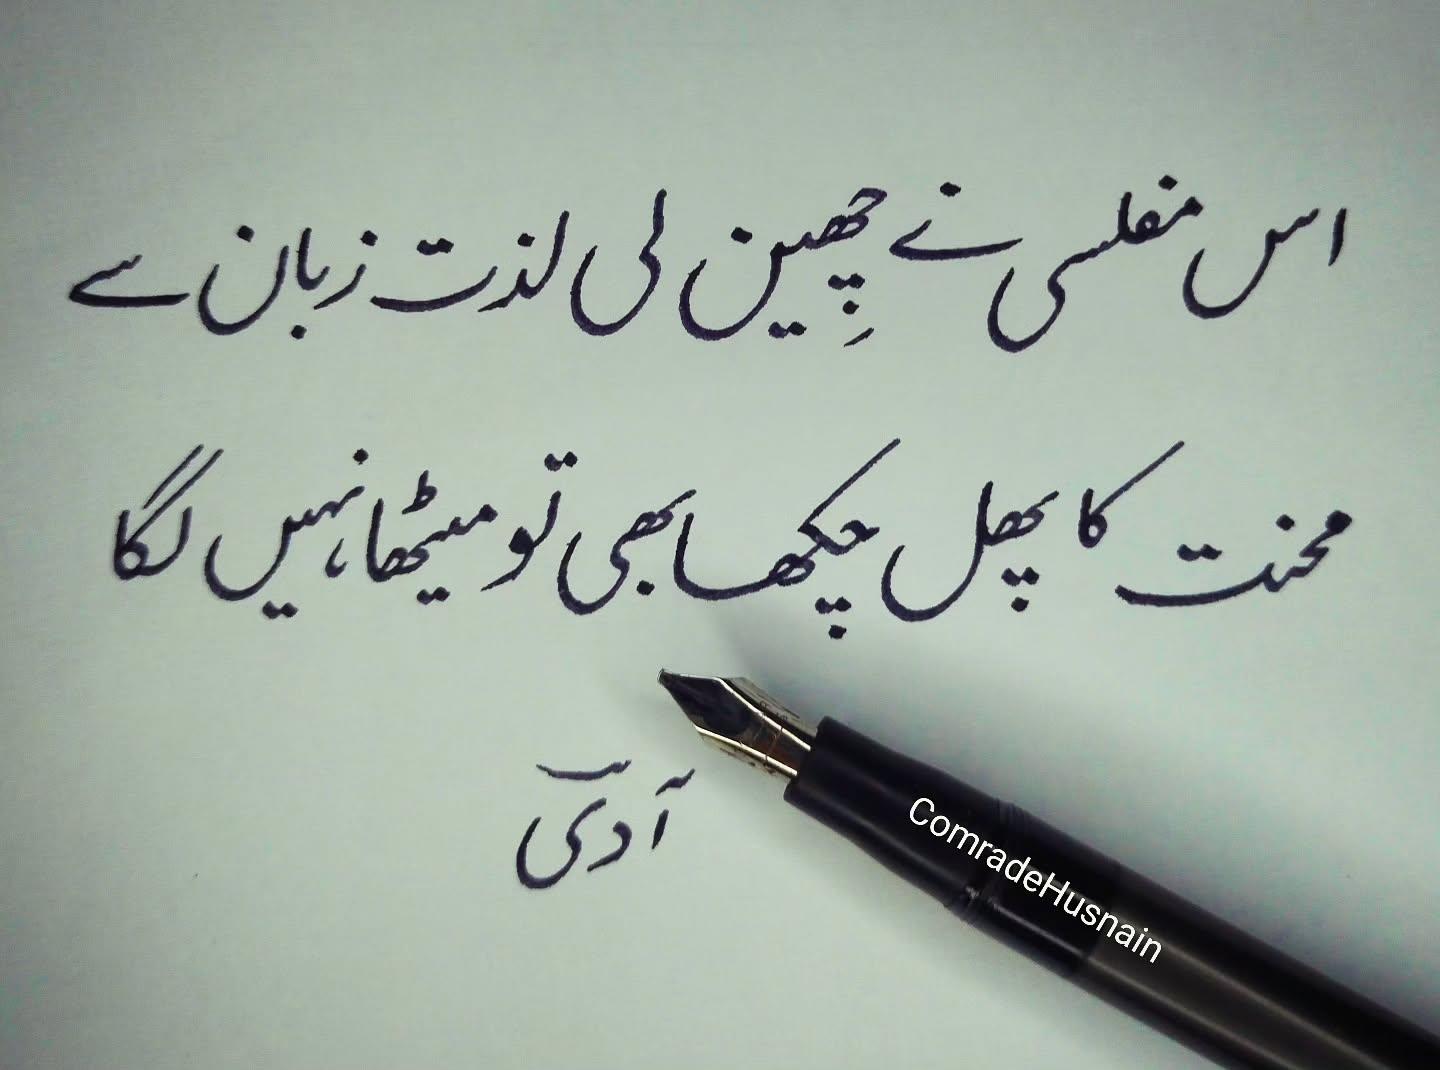 اس مفلسی نے چھِین لی لذت زبان سے
محنت کا پھل چکھا بھی تو میٹھا، نہیں لگا
آدی
ComradeHusnain